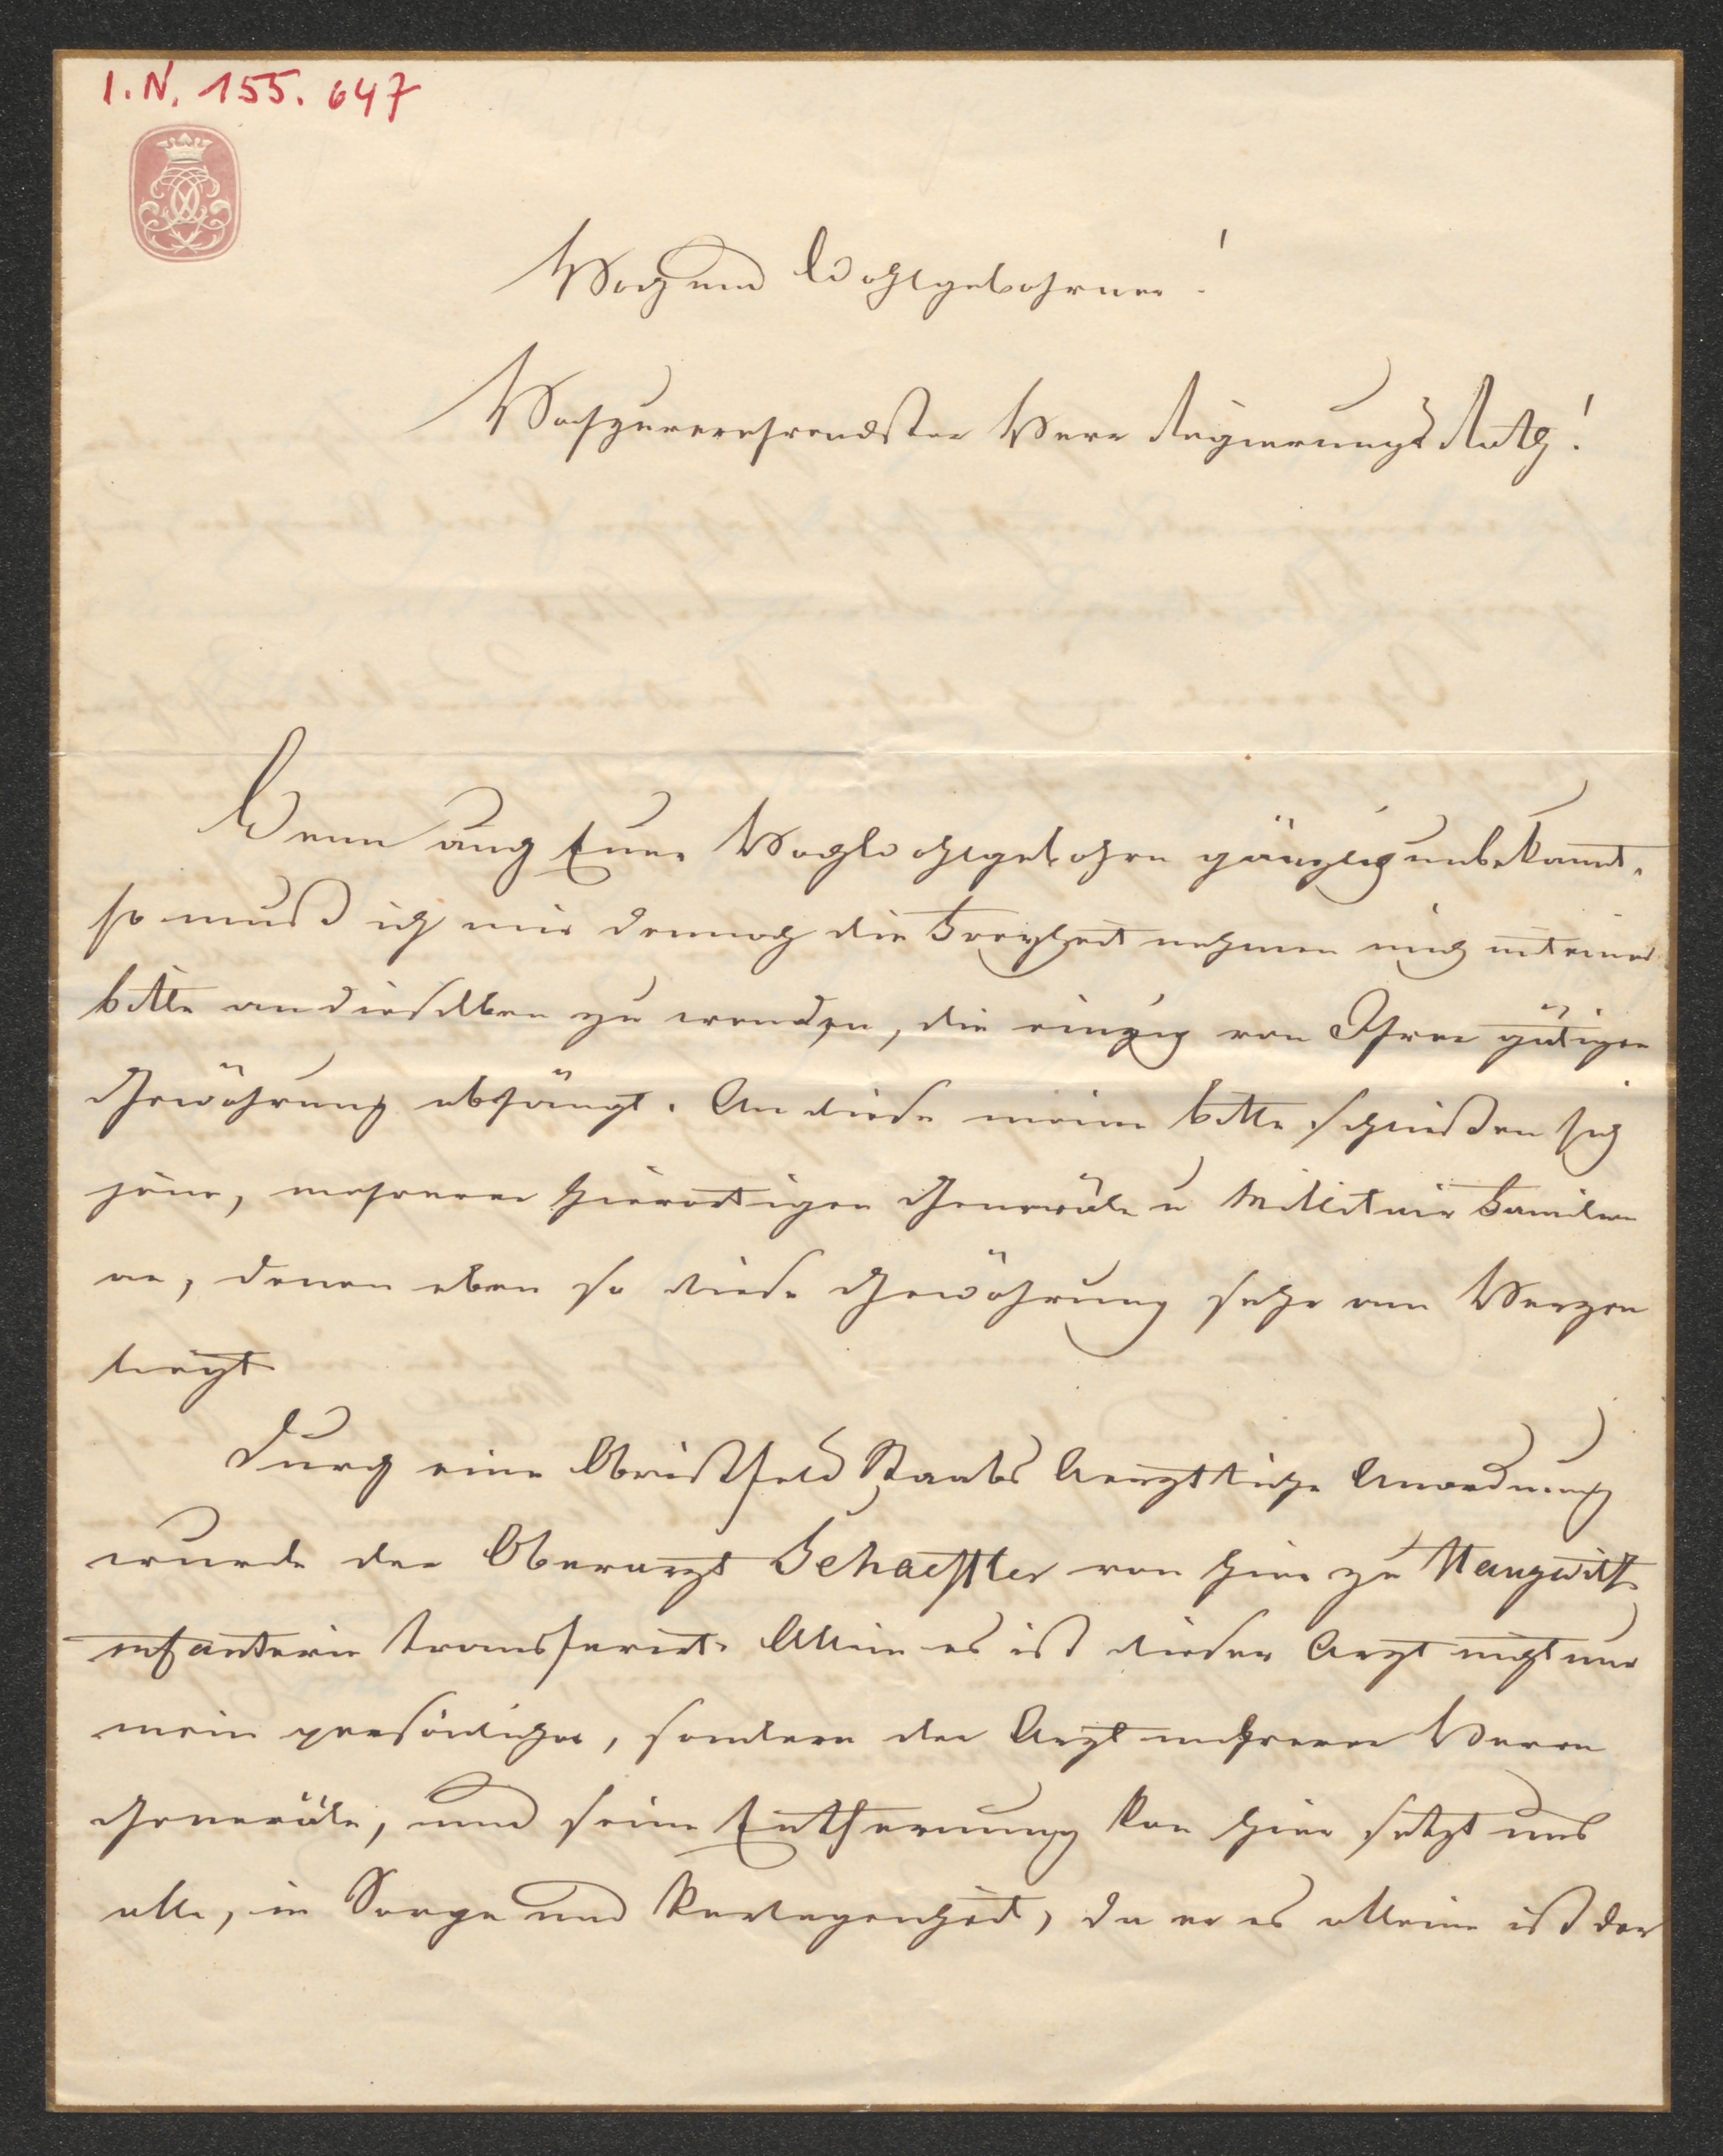 I.N. 155.647
Hoch und Wohlgebohrner!
Hochzuverehrendster Herr Regierungs Rath!
Wenn auch Euer Hochwohlgebohrn gänzlich unbekannt,
so muß ich mir dennoch die Freyheit nehmen mich mit einer
bitte an dieselben zu wenden, die einzig von Ihrer gütigen
Gewährung abhängt. An diese meine bitte schließen sich
jene, mehrerer hierortigen Generäle u Militair Familien
an, denen eben so diese Gewährung sehr am Herzen
liegt
Durch eine Obristfeld Staabs Aerztliche Anordnung
wurde der Oberarzt Schaeffler von hier zu Haugwitz
infanterie transferirt. Allein es ist dieser Arzt nicht nur
mein persönlicher, sondern der Arzt mehrerer Herrn
Generäle, und seine Entfernung von hier setzt uns
alle, in Sorge und Verlegenheit, da er es alleine ist der